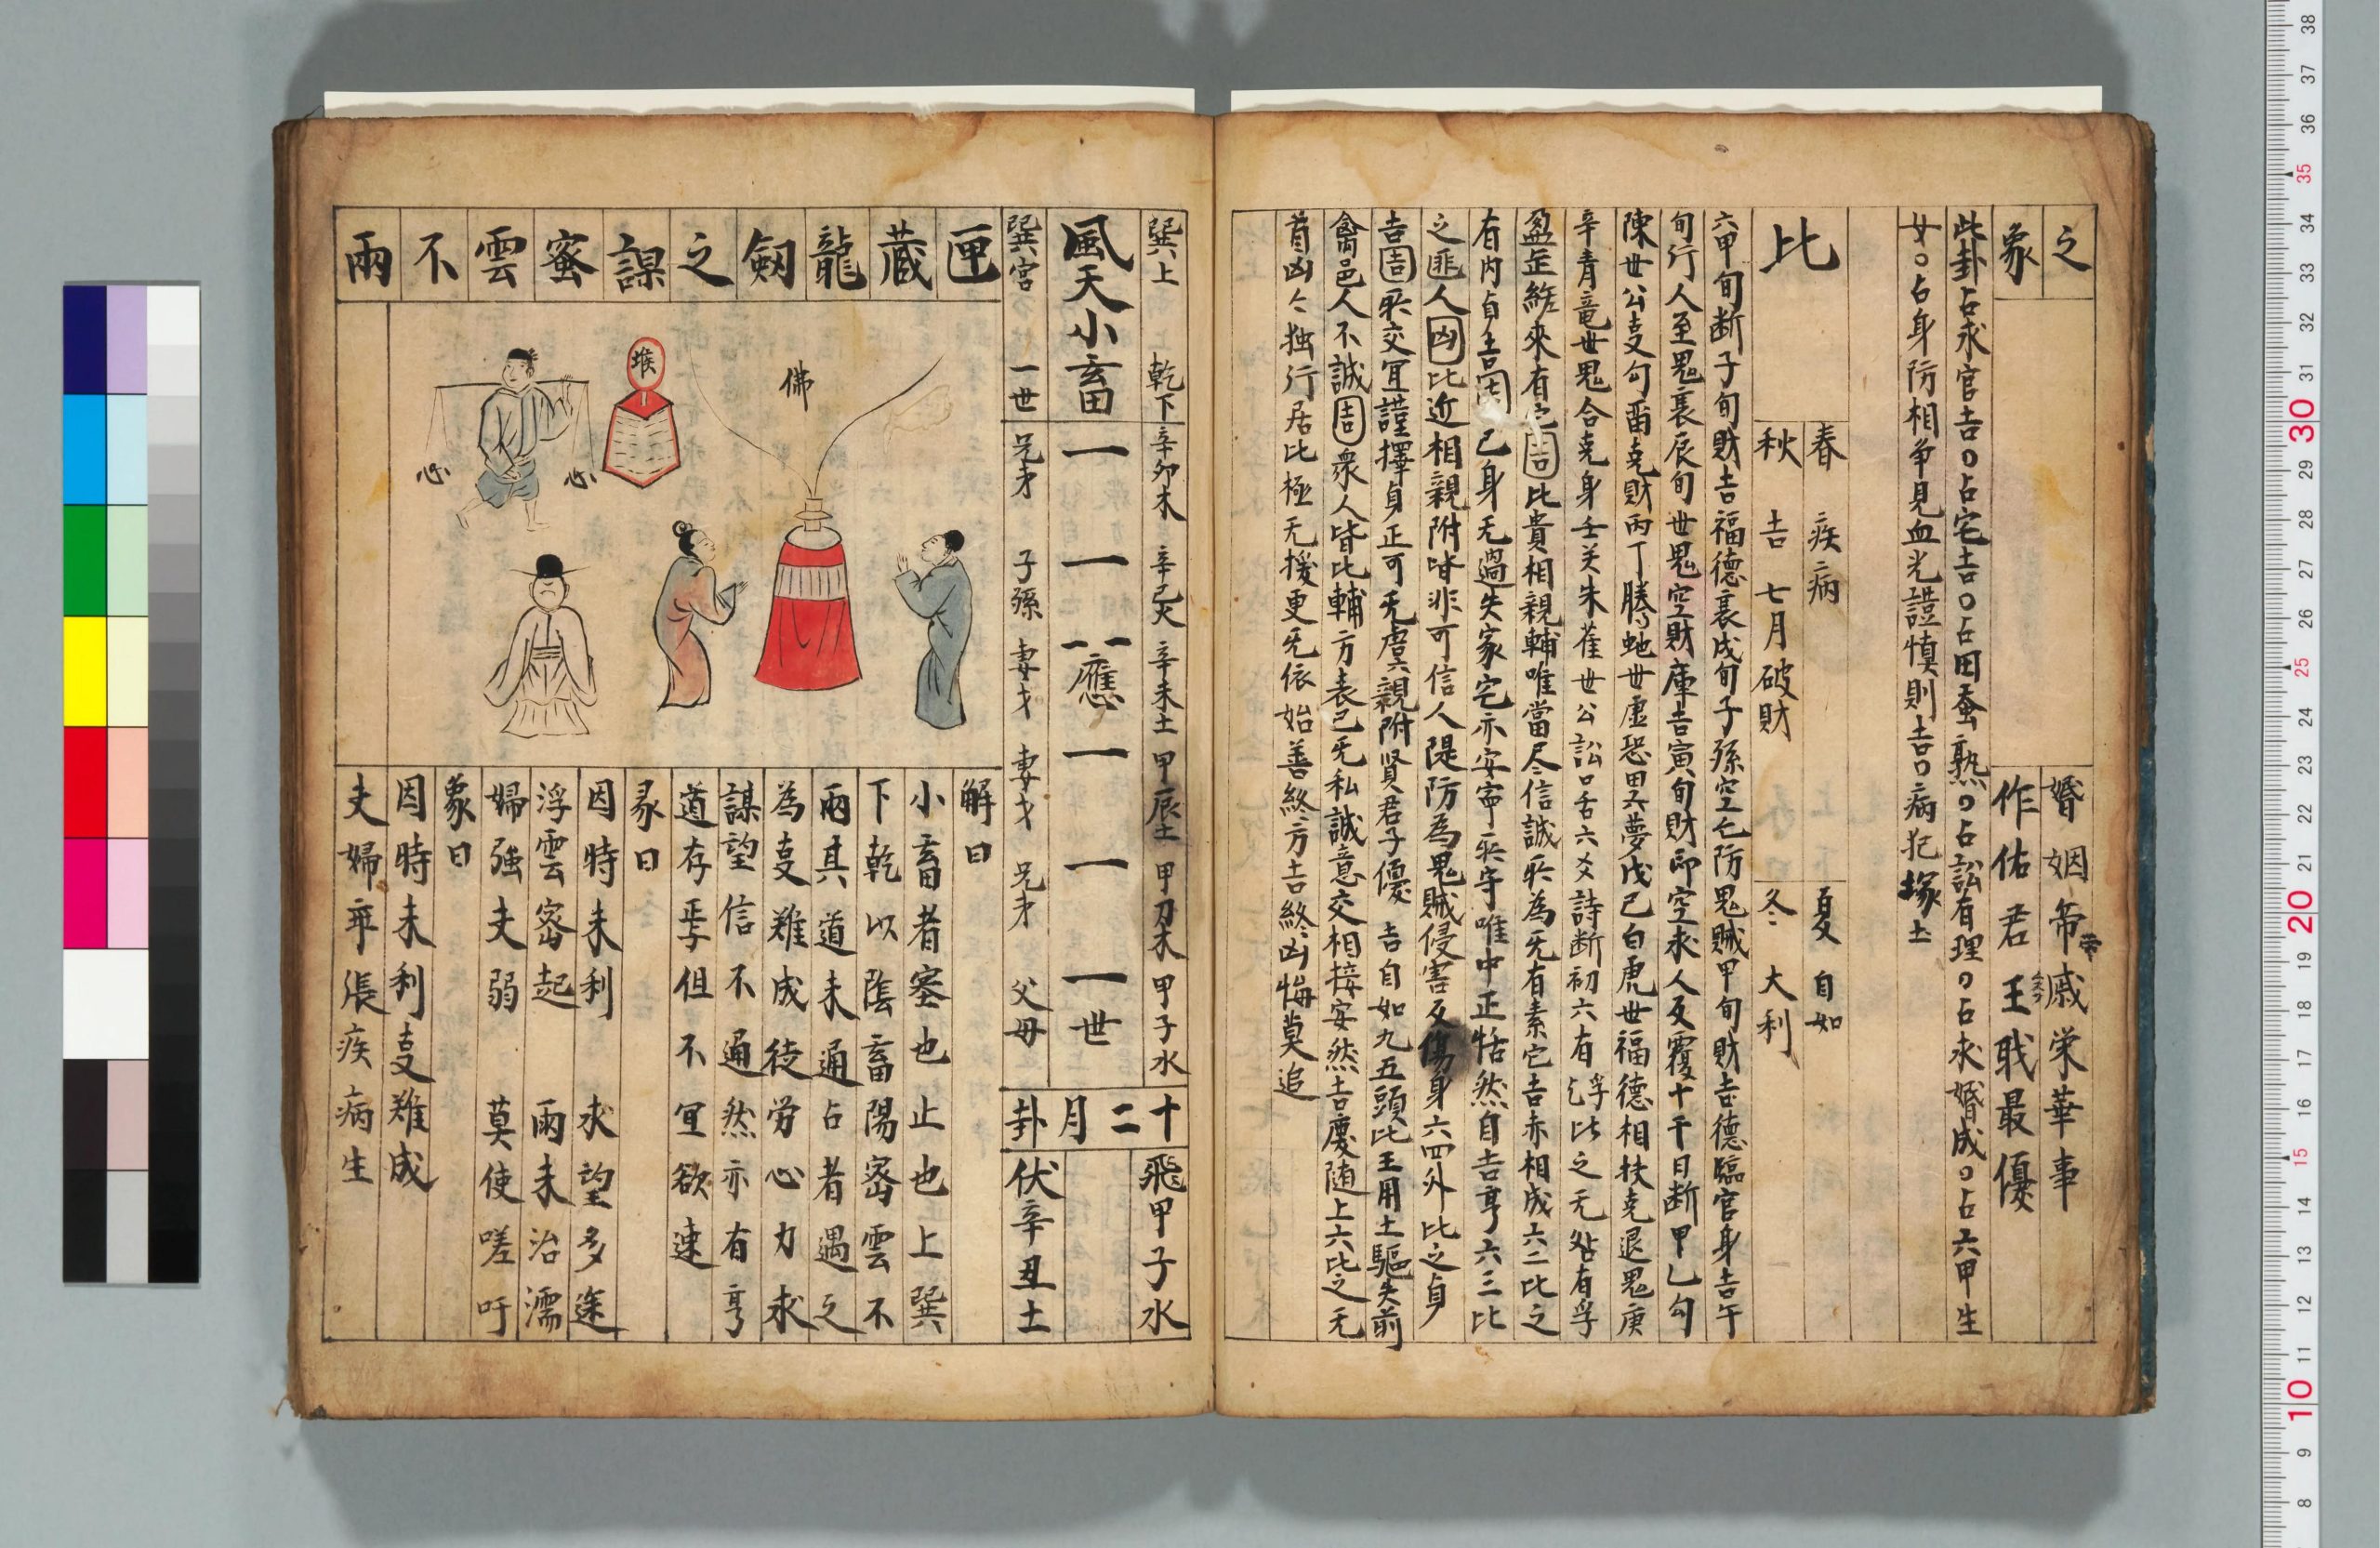 之
象
婚姻帝戚栄華事
作佑君王戝最優
此卦占求官吉〇占宅吉〇占田蚕熟〇占訟有理〇占求婚成〇占六甲生
女〇占身防相争見血光證慎則吉〇病犯塚土
比
春 疾病
秋 吉 七月破財
夏 自如
冬 大利
六甲旬断子旬財吉福德衰戌旬子孫空亡防鬼賊甲旬財吉德臨官身吉午
旬行人至鬼衰辰旬世鬼空財庫吉寅旬財即空求人反覆十干日断甲乙勾
陳世公㕝勾留尭財丙丁騰虵世虚恐異夢戊己白虎世福德相扶尭退鬼庚
辛青竜世鬼合尭身壬关朱雀世公訟口舌六爻詩断初六有孚比之无咎有孚
盈缶終來有它吉比貴相親輔唯當尽信誠乐為旡有素它吉亦相成六二比之
有內貞吉 己身无過失家宅亦安寧乐守唯中正恬然自吉亨六三比
之匪人凶比近相親附皆非可信人隄防為鬼賊侵害反傷身六四外比之貞
吉 乐交宜謹擇貞正可旡虞六親附賢君子優 吉自如九五顕比王用土驅失前
禽邑人不誡 衆人皆比輔方表己旡私誠意交相接安然吉慶随上六比之无
首凶 独行居比極无援更旡依始善終方吉終凶悔莫追
巽上 乾下
辛卯木 辛巳火 辛未土 甲辰土 甲寅木 甲子水
風天小畜
應
世
巽宮 一世
兄弟 子孫 妻才 妻才 兄弟 父母
十二月卦
飛甲子水
伏辛丑土
匣藏龍劒之謀蜜雲不雨
堠
佛
心
心
解曰
小畜者塞也止也上巽
下乾以陰畜陽密雲不
雨其道未通占者遇之
為㕝難成徒劳心力求
謀望信不通然亦有亨
道存乎但不宜欲速
彖曰
因時未利 求望多途
浮雲密起 雨未治濡
婦強夫弱 莫使嗟吁
象曰
因時未利㕝難成
夫婦乖張疾病生